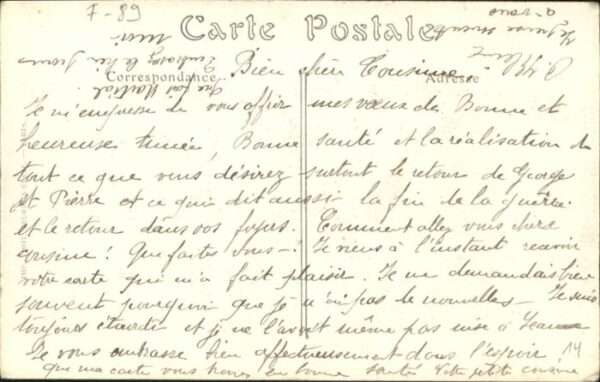 7-89
Carte Postale
Correspondance
Adresse
Bien chère Cousine
Je m'empresse de vous offrir mes vœux de Bonne et
heureuse Année, Bonne santé et la réalisation de
tout ce que vous désirez surtout le retour de George
et Pierre et ce qui dit aussi la fin de la guerre
et le retour dans vos foyers. Comment allez vous chère
cousine! Que faites vous-! Je viens à l'instant recevoir
votre carte qui m'a fait plaisir. Je me demandais bien
souvent pourquoi que je n'ai pas de nouvelles - Je suis
toujours et je ne l'avait même pas mise à
Je vous embrasse bien affectueusement dans l'espoir 14
que ma carte vous trouve en bonne santé Votre petite cousine
Embrassez le bien
moi